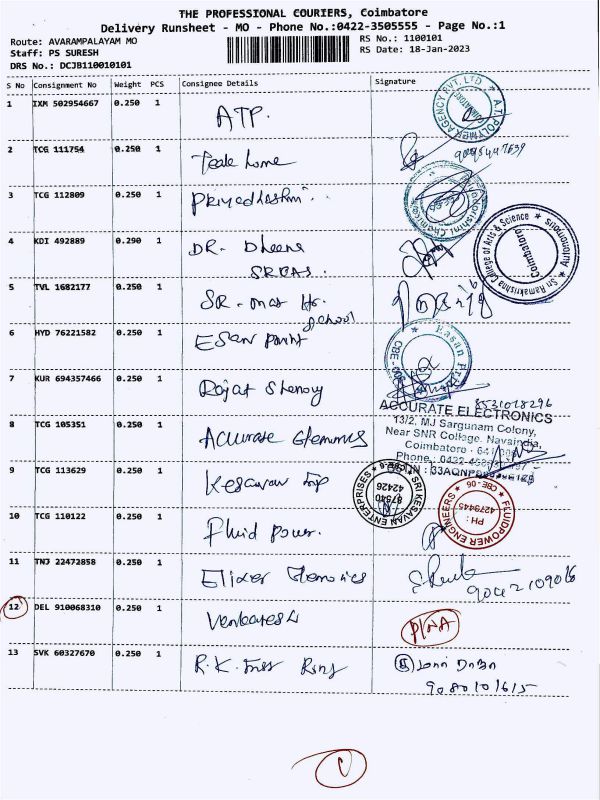 THE PROFESSIONAL COURIERS, Coimbatore
Delivery Runsheet - MO - Phone No.:0422-3505555 - Page No.:1
Route: AVARAMPALAYAM MO RS No.: 1100101
Staff: PS SURESH RS Date: 18-Jan-2023
DRS No.: DCJB110010101
S No Consignment No Weight PCS Consignee Details Signature
1 IXM 502954667 0.250 1 ATP.
A.T. POLYMER AGENCY PVT. LTD. COIMBATORE
2 TCG 111754 0.250 1 Teak home
3 TCG 112809 0.250 1 Priyadharshni
4 KDI 492889 0.290 1 DR. Dheena
SRCAS.
Sri Ramakrishna College of Arts & Science Autonomous Coimbatore
5 TVL 1682177 0.250 1 SR. mat Hr.
School
6 HYD 76221582 0.250 1 Esan Print
7 KUR 694357466 0.250 1 Rajat Shenoy
8521018296
8 TCG 105351 0.250 1 Accurate
ACCURATE ELECTRONICS
13/2, MJ Sargunam Colony,
Near SNR College, Navaindia,
Coimbatore
Phone : 0422
9 TCG 113629 0.250 1 Kesavan
SRI KESAVAN ENTERPRISES
10 TCG 110122 0.250 1 Fluid Power.
FLUIDPOWER ENGINEERS CBE - 06 PH : 4279445
11 TNJ 22472858 0.250 1 Elixer
9042109016
12 DEL 910068310 0.250 1 Venkatesh
P/NA
13 SVK 60327670 0.250 1 R.K.
9080101615